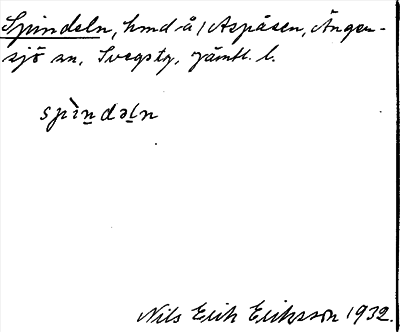 Spindeln, hmd å / Aspåsen, Änger-
sjö sn, Svegs tg, Jämtl. l.
spìn̲dəl̲n
Nils Erik Eriksson 1932.